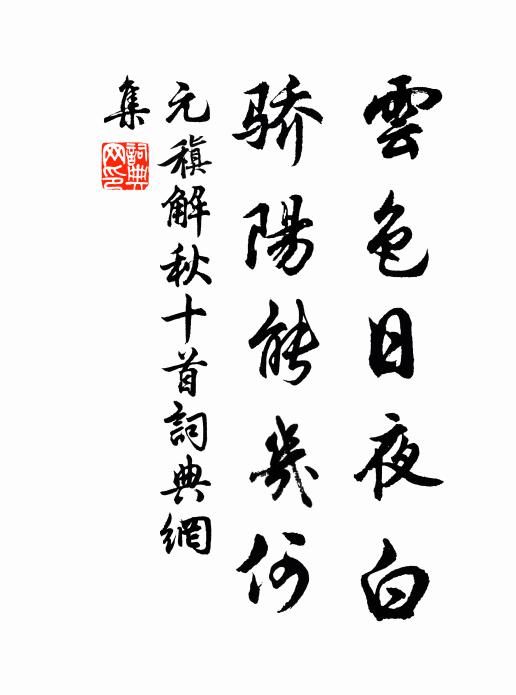 雲色日夜白
骄陽能幾何
元稹解秋十首詞典網
集
詞典網印